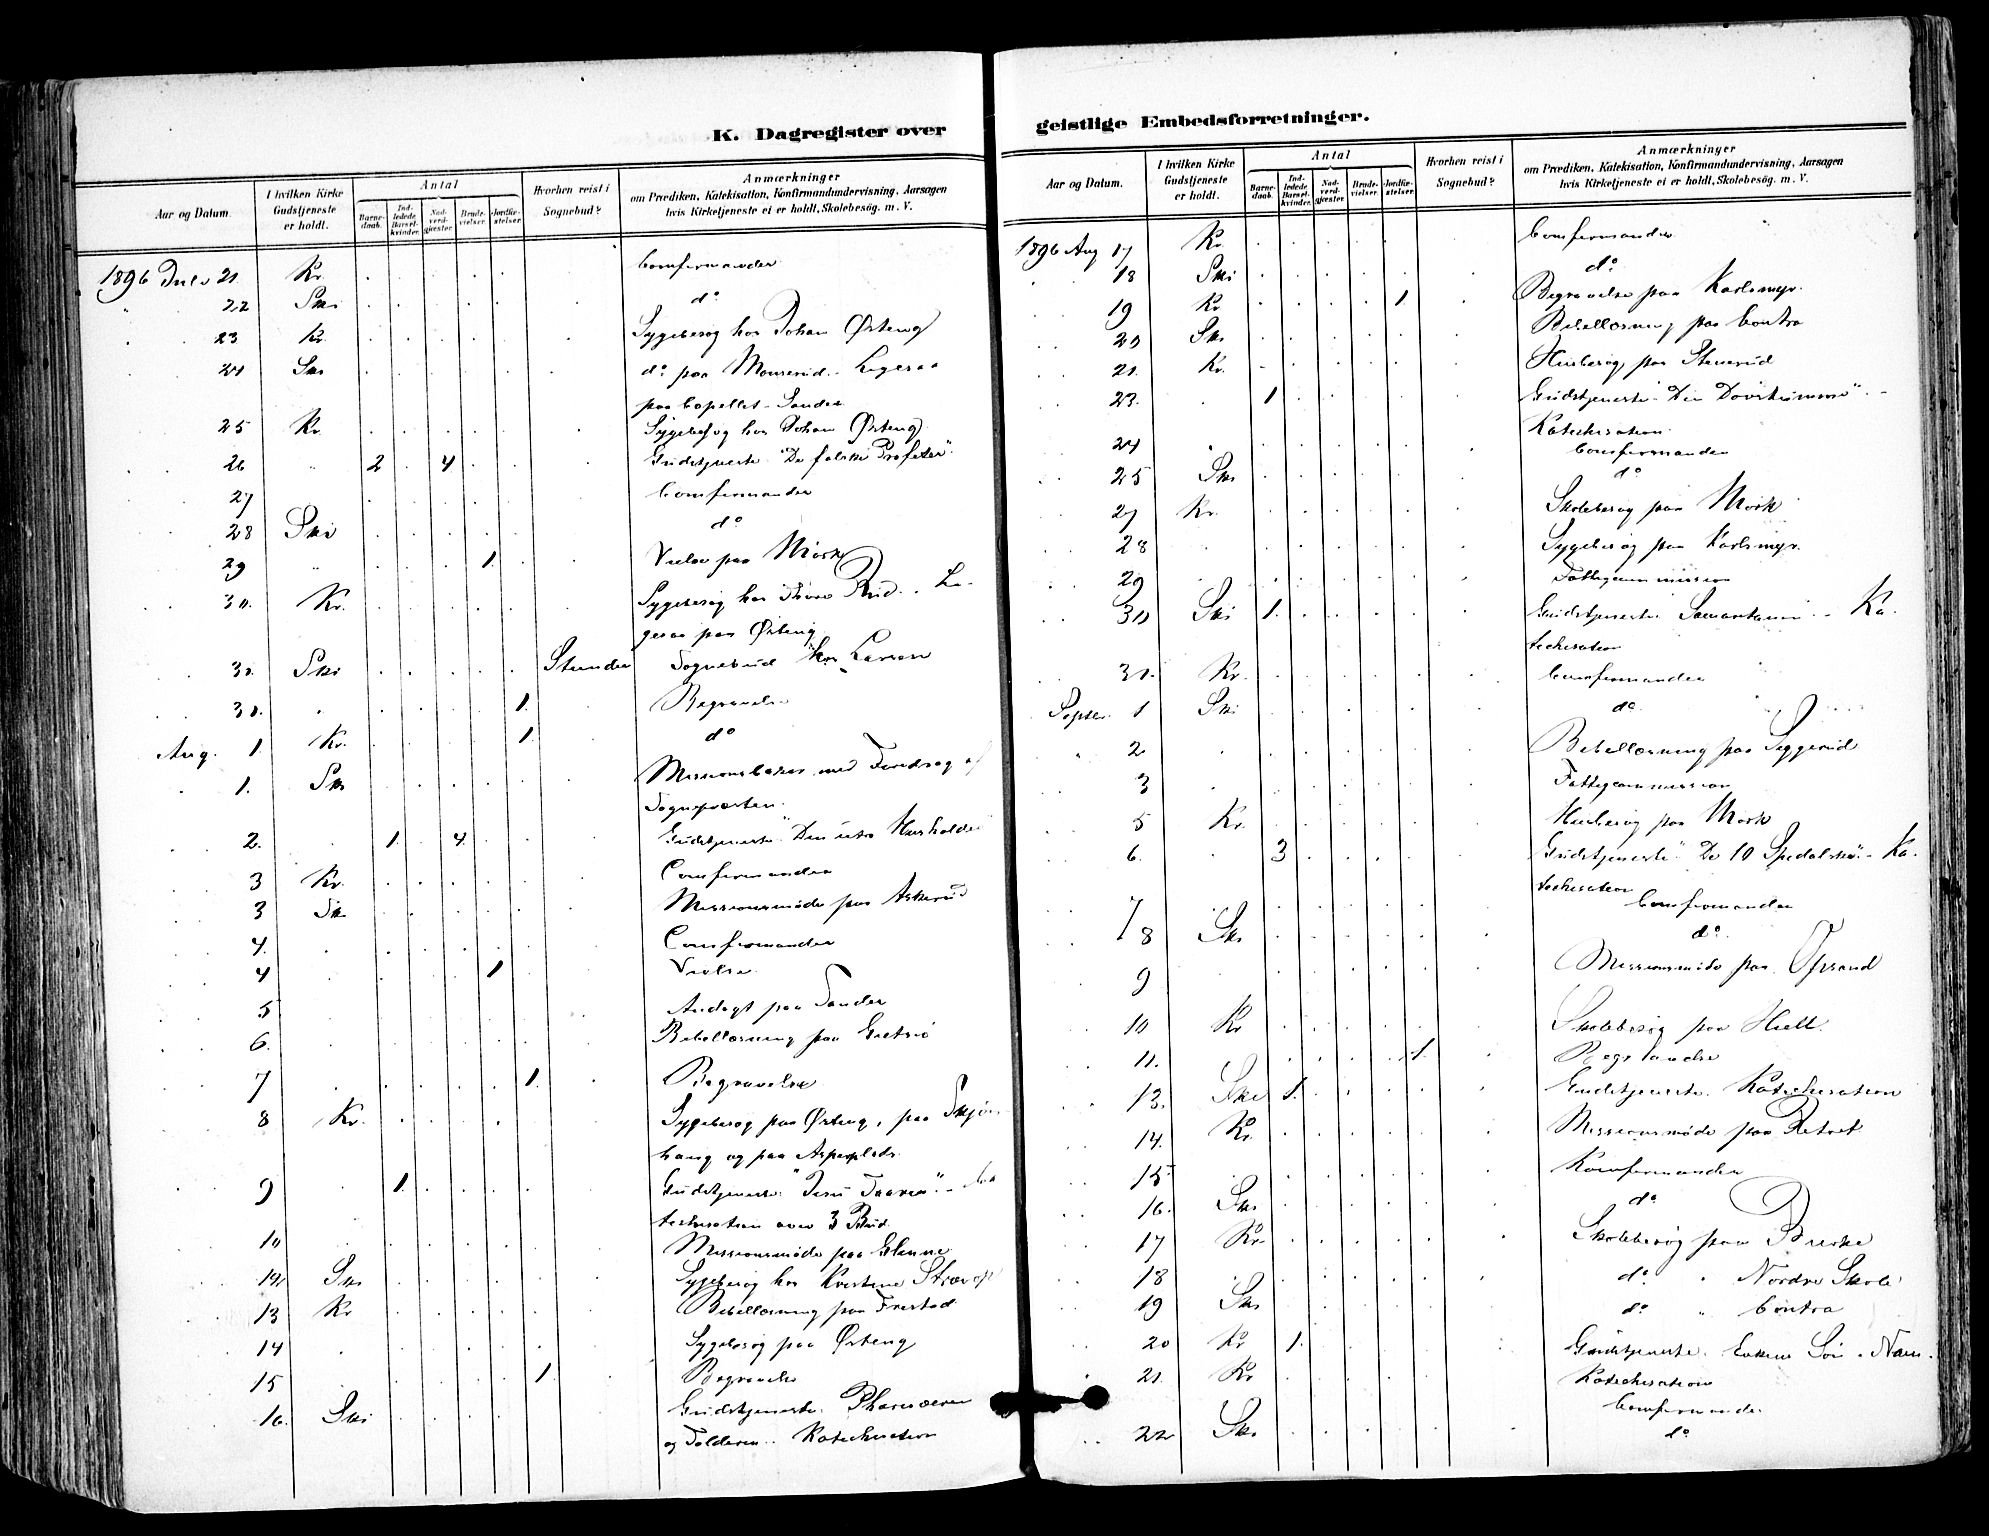 K. Dagregister over
Aar og Datum.
I hvilken Kirke Gudstjeneste er holdt.
Antal
Barne-daab.
Ind-ledede Barsel-kvinder.
Nad-verd-gjæster.
Brude-vielser.
Jordfæ-stelser.
Hvorhen reist i Sognebud?
Anmærkninger
om Prædiken, Katekisation, Konfirmandundervisning, Aarsagen
hvis Kirketjeneste ei er holdt, Skolebesög. m. V.
1896 Juli 21. Kr. Comfirmander
22 Ski do
23 Kr. Sygebesøg hos Johan Østeng
24 Ski do paa Monserud. Ligesaa
paa Capellet - Sander
25 Kr. Sygebesøg hos Johan Østeng
26 " 2 4 Gudstjeneste "De falske Profeter"
27 Comfirmander
28 Ski do
29 " 1 Vielse paa Mork
30. Kr. Sygebesøg hos Thore Rud. Li-
gesaa paa Østeng
31. Ski Stunder Sognebud hos Larsen
31. " 1. Begravelse
Aug. 1 Kr. 1. do
1. Ski Missionsbazar med Foredrag af
Sognepræsten.
2. 1. 4. Gudstjeneste "Den utro Husholder
3 Kr. Comfirmander
3 Sk Missionsmøde paa Askerud
4. Comfirmander
4 1 Vielse
5 Andagt paa Sander
6. Bibellæsning paa
7 1. Begravelse
8 Kr. Sygebesøg paa Østeng, paa
haug og paa Aspeplads.
9 1. Gudstjeneste. "Jesu Taarer". - Ca
techisation over 3 Bud.
10 Missionsmøde paa Glenne
12. Ski Sygebesøg hos Kristine
13 Kr Bibellæsning paa Frestad
14 Sygebesøg paa Østeng
15 1 Begravelse
16. Ski Gudstjeneste. Pharisæeren
og Tolderen. Katechisation
geistlige Embedsforretninger.
Aar og Datum.
I hvilken Kirke Gudstjeneste er holdt.
Antal
Barne-daab.
Ind-ledede Barsel-kvinder.
Nad-verd-gjæster.
Brude-vielser.
Jordfæ-stelser.
Hvorhen reist i Sognebud?
Anmærkninger
om Prædiken, Katekisation, Konfirmandundervisning, Aarsagen
hvis Kirketjeneste ei er holdt, Skolebesög. m. V.
1896 Aug 17 Kr. Comfirmander
18 Ski do
19 Kr 1 Begravelse paa Karlsmyr.
20 Ski Bibellæsning paa Contra
21. Kr. Husbesøg paa Stenerud
23. 1 Gudstjeneste "Den Døvstumme" -
Katechisation
24 Comfirmander
25 Ski do
27 Kr. Skolebesøg paa Mork
28 Sygebesøg paa Karlsmyr.
29 Fattigcommission
30 Ski 1. Gudstjeneste. Samaritanen. - Ka-
techisation
31. Kr. Comfirmander
Septer. 1 Ski do
2 Bibellæsning paa Siggerud
3 Fattigcommission
5 Kr. Husbesøg paa Mork
6. 3 Gudstjeneste. "De 10 Spedalske". - Ka-
techisation
7 Comfirmander
8 Ski do
9 Missionsmøde paa Opsand
10 Kr Skolebesøg paa
11. 1. Begravelse
13. Ski 1. Gudstjeneste. Katechisation
14. Kr. Missionsmøde paa
15 Komfirmander
16. Ski do
17 Kr. Skolebesøg paa
18 do " Nordre Skole
19 Ski do " Contra
20 Kr 1. Gudstjeneste. Enkens Søn. Nain.
Katechisation
21. Kr Comfirmander
22 Ski do